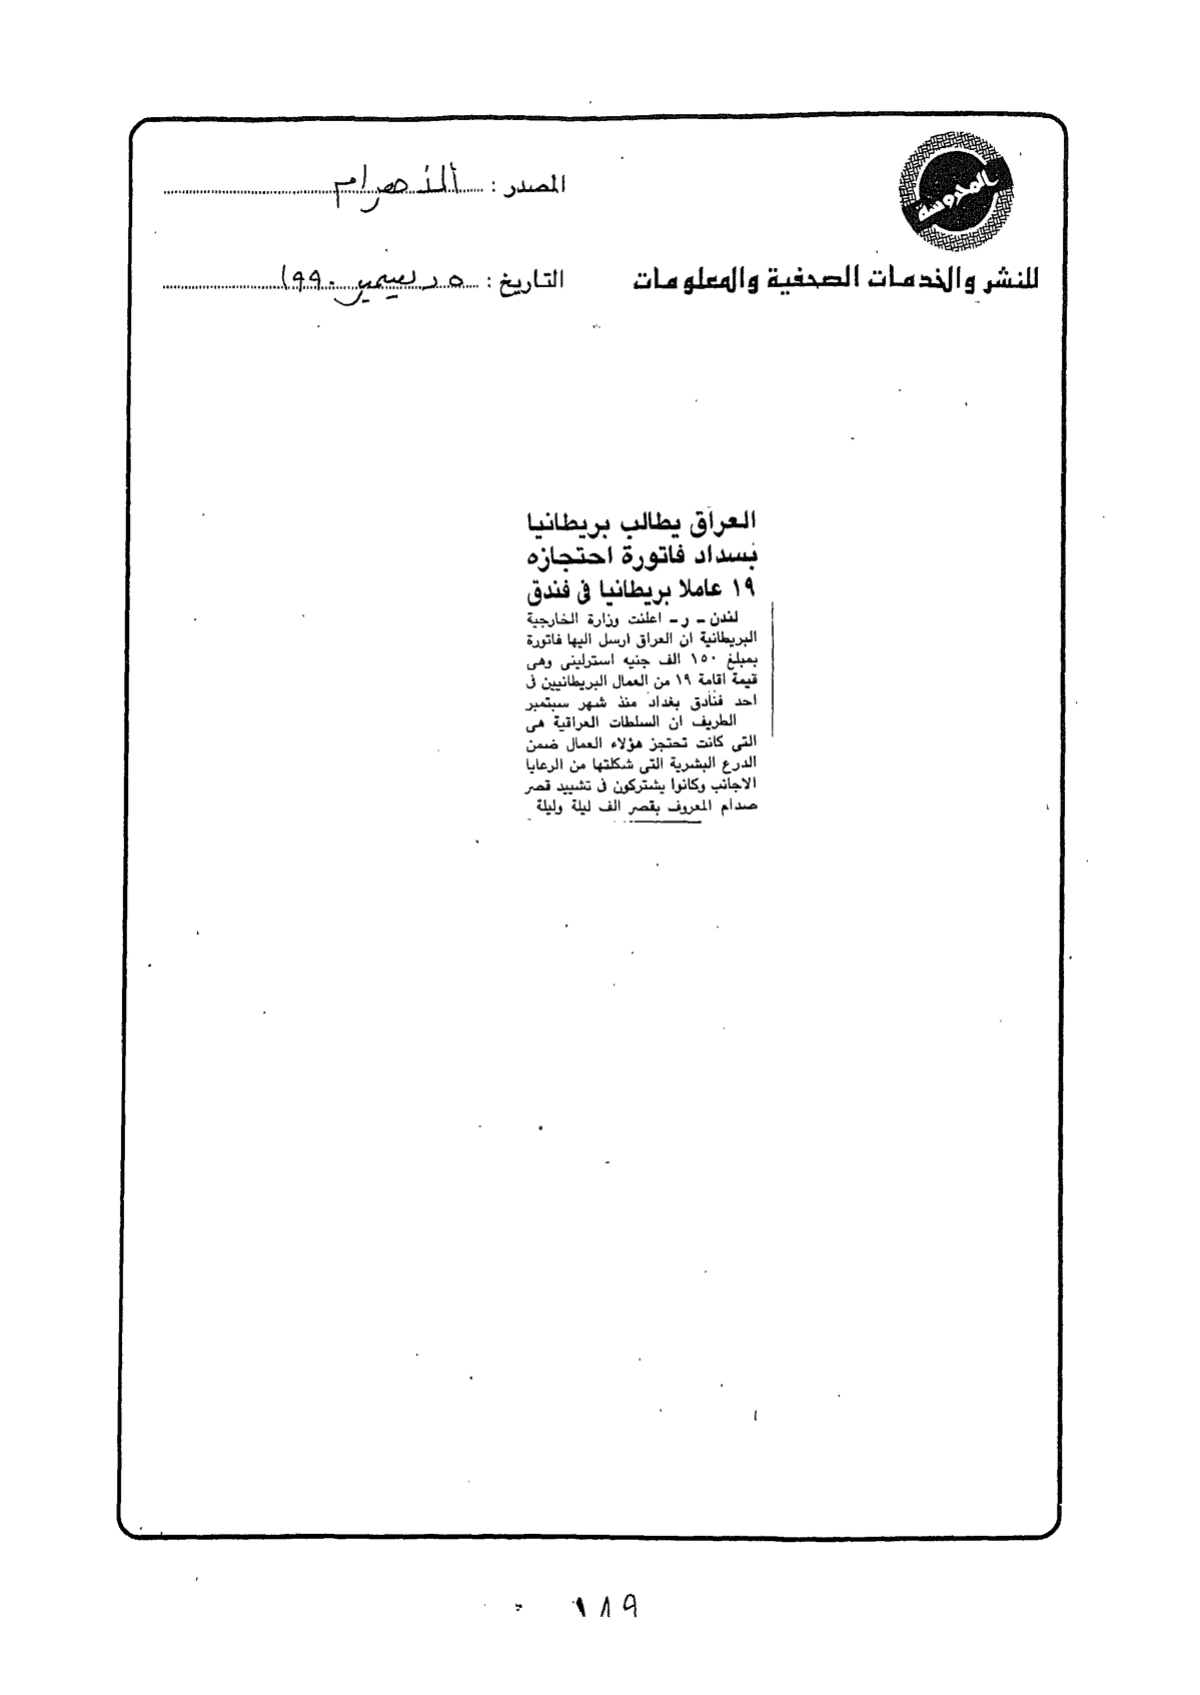 المحروسة
المصدر : الأهرام
للنشر والخدمات الصحفية والمعلومات
التاريخ : ٥ ديسمبر ١٩٩٠
العراق يطالب بريطانيا
بسداد فاتورة احتجازه
١٩ عاملا بريطانيا فى فندق
لندن ـ ر ـ اعلنت وزارة الخارجية
البريطانية ان العراق ارسل اليها فاتورة
بمبلغ ١٥٠ الف جنيه استرلينى وهى
قيمة اقامة ١٩ من العمال البريطانيين فى
احد فنادق بغداد منذ شهر سبتمبر
الطريف ان السلطات العراقية هى
التى كانت تحتجز هؤلاء العمال ضمن
الدرع البشرية التى شكلتها من الرعايا
الاجانب وكانوا يشتركون فى تشييد قصر
صدام المعروف بقصر الف ليلة وليلة
١٨٩